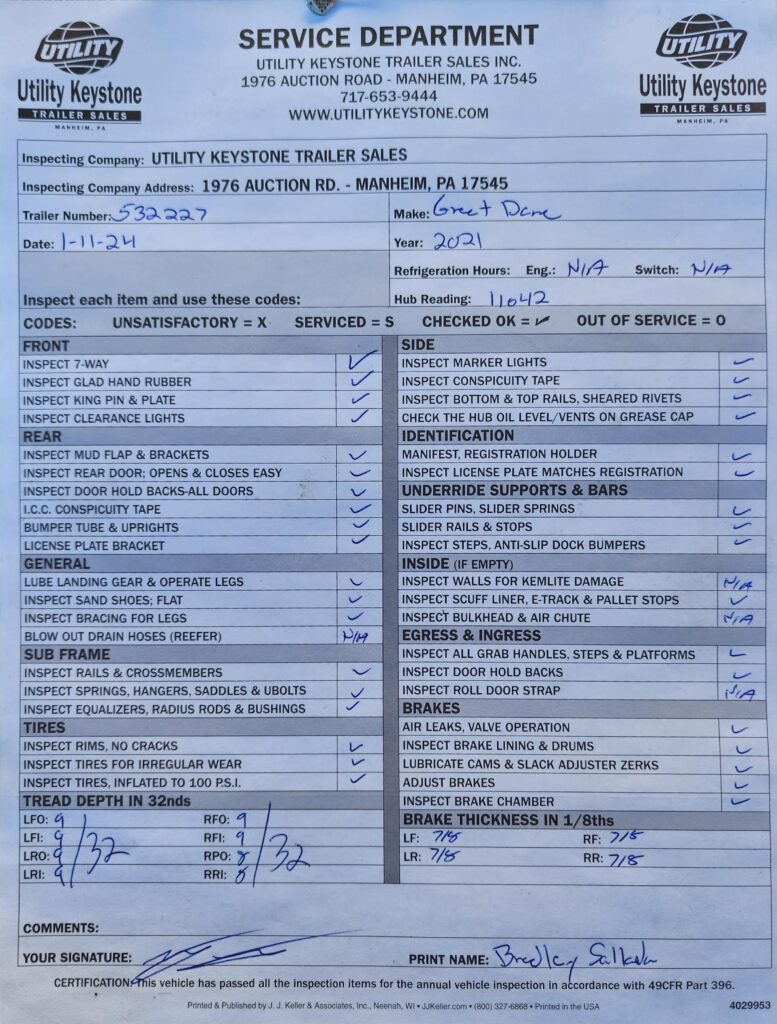 UTILITY
Utility Keystone
TRAILER SALES
MANHEIM, PA
SERVICE DEPARTMENT
UTILITY KEYSTONE TRAILER SALES INC.
1976 AUCTION ROAD - MANHEIM, PA 17545
717-653-9444
WWW.UTILITYKEYSTONE.COM
UTILITY
Utility Keystone
TRAILER SALES
MANHEIM, PA
Inspecting Company: UTILITY KEYSTONE TRAILER SALES
Inspecting Company Address: 1976 AUCTION RD. - MANHEIM, PA 17545
Trailer Number: 532227
Make: Great Dane
Date: 1-11-24
Year: 2021
Refrigeration Hours: Eng.: N/A Switch: N/A
Inspect each item and use these codes:
Hub Reading: 11042
CODES: UNSATISFACTORY = X SERVICED = S CHECKED OK = ✓ OUT OF SERVICE = O
FRONT
INSPECT 7-WAY ✓
INSPECT GLAD HAND RUBBER ✓
INSPECT KING PIN & PLATE ✓
INSPECT CLEARANCE LIGHTS ✓
REAR
INSPECT MUD FLAP & BRACKETS ✓
INSPECT REAR DOOR; OPENS & CLOSES EASY ✓
INSPECT DOOR HOLD BACKS-ALL DOORS ✓
I.C.C. CONSPICUITY TAPE ✓
BUMPER TUBE & UPRIGHTS ✓
LICENSE PLATE BRACKET ✓
GENERAL
LUBE LANDING GEAR & OPERATE LEGS ✓
INSPECT SAND SHOES; FLAT ✓
INSPECT BRACING FOR LEGS ✓
BLOW OUT DRAIN HOSES (REEFER) N/A
SUB FRAME
INSPECT RAILS & CROSSMEMBERS ✓
INSPECT SPRINGS, HANGERS, SADDLES & UBOLTS ✓
INSPECT EQUALIZERS, RADIUS RODS & BUSHINGS ✓
TIRES
INSPECT RIMS, NO CRACKS ✓
INSPECT TIRES FOR IRREGULAR WEAR ✓
INSPECT TIRES, INFLATED TO 100 P.S.I. ✓
TREAD DEPTH IN 32nds
LFO: 9 RFO: 9
LFI: 9 RFI: 9
LRO: 9 /32 RPO: 8 /32
LRI: 9 RRI: 8
SIDE
INSPECT MARKER LIGHTS ✓
INSPECT CONSPICUITY TAPE ✓
INSPECT BOTTOM & TOP RAILS, SHEARED RIVETS ✓
CHECK THE HUB OIL LEVEL/VENTS ON GREASE CAP ✓
IDENTIFICATION
MANIFEST, REGISTRATION HOLDER ✓
INSPECT LICENSE PLATE MATCHES REGISTRATION ✓
UNDERRIDE SUPPORTS & BARS
SLIDER PINS, SLIDER SPRINGS ✓
SLIDER RAILS & STOPS ✓
INSPECT STEPS, ANTI-SLIP DOCK BUMPERS ✓
INSIDE (IF EMPTY)
INSPECT WALLS FOR KEMLITE DAMAGE N/A
INSPECT SCUFF LINER, E-TRACK & PALLET STOPS ✓
INSPECT BULKHEAD & AIR CHUTE N/A
EGRESS & INGRESS
INSPECT ALL GRAB HANDLES, STEPS & PLATFORMS ✓
INSPECT DOOR HOLD BACKS ✓
INSPECT ROLL DOOR STRAP N/A
BRAKES
AIR LEAKS, VALVE OPERATION ✓
INSPECT BRAKE LINING & DRUMS ✓
LUBRICATE CAMS & SLACK ADJUSTER ZERKS ✓
ADJUST BRAKES ✓
INSPECT BRAKE CHAMBER ✓
BRAKE THICKNESS IN 1/8ths
LF: 7/8 RF: 7/8
LR: 7/8 RR: 7/8
COMMENTS:
YOUR SIGNATURE:
PRINT NAME: Bradley
CERTIFICATION: This vehicle has passed all the inspection items for the annual vehicle inspection in accordance with 49CFR Part 396.
Printed & Published by J. J. Keller & Associates, Inc., Neenah, WI • JJKeller.com • (800) 327-6868 • Printed in the USA
4029953